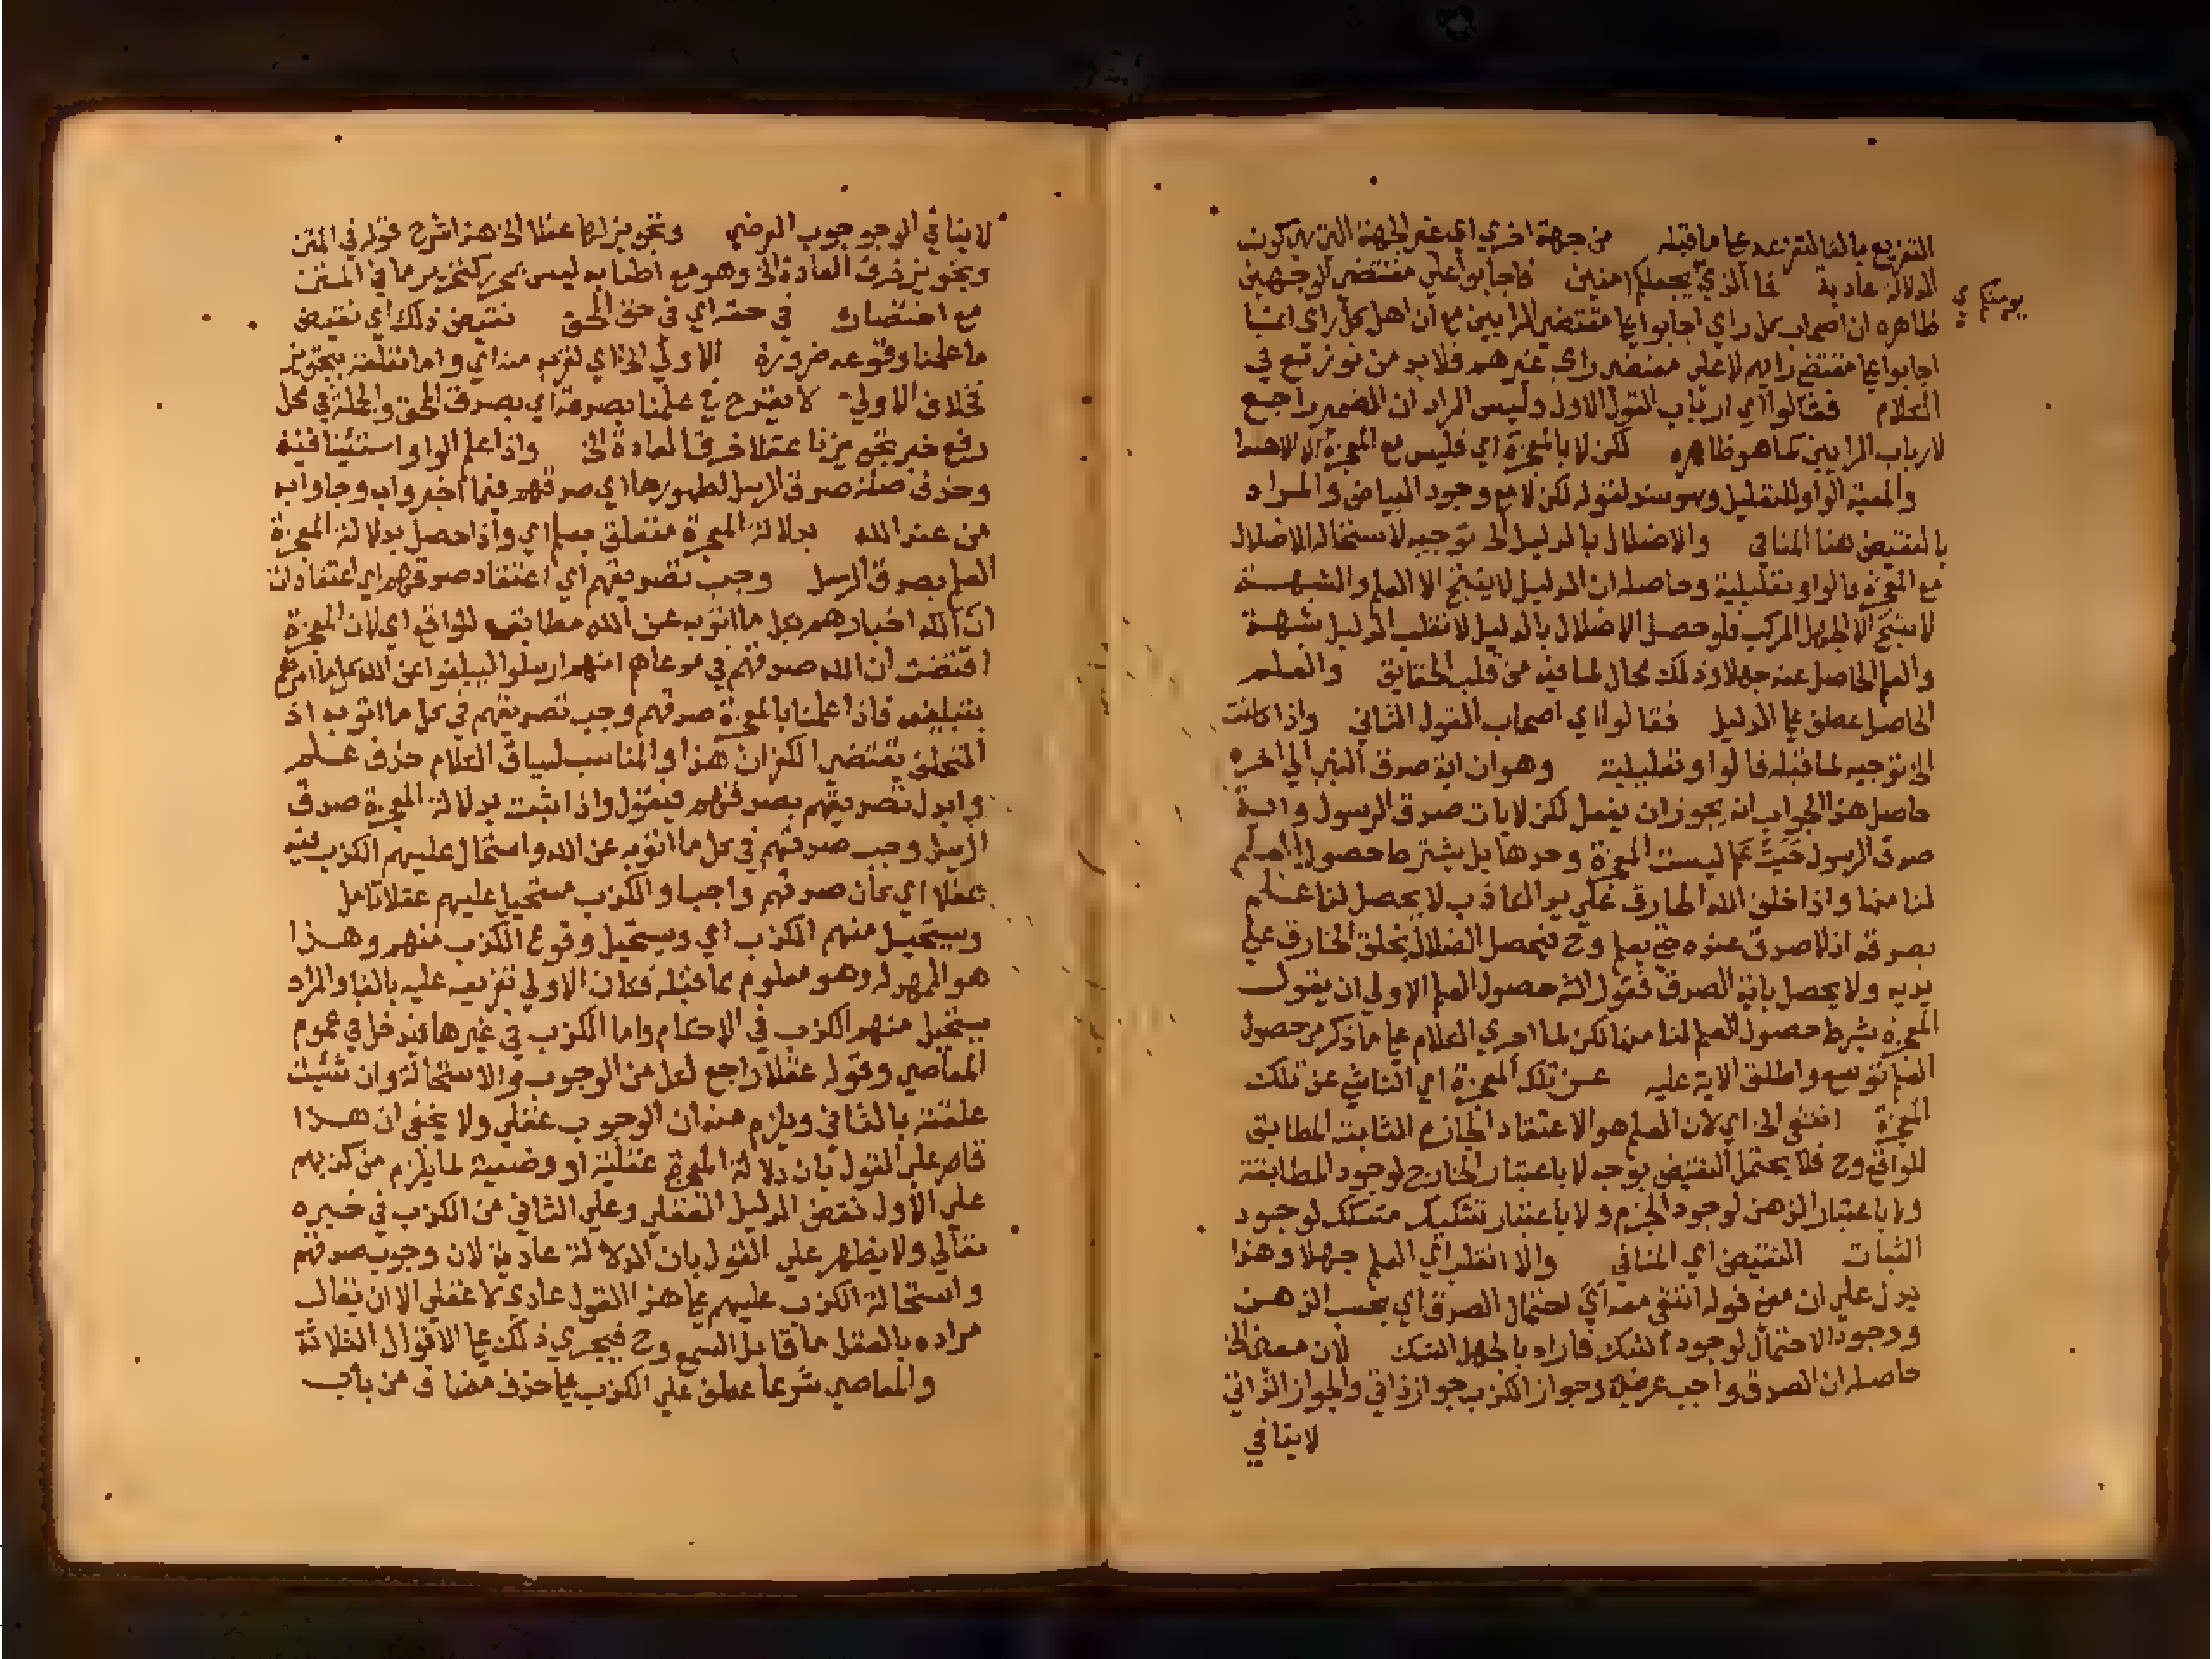 التفريع بالفا لتفرعه علي ما قبله من جهة اخري اي غير الجهة التي هي كون
الدلالة عادية فما الذي يجعلكم امنين فاجابوا علي مقتضي الوجهين
يومنكم ي
ظاهره ان اصحاب كل راي اجابوا علي مقتضي الرايين مع ان اهل كل راي انما
اجابوا علي مقتضي رايهم لا علي مقتضي راي غيرهم فلا بد من توزيع في
الكلام فقالوا اي ارباب القول الاول وليس المراد ان الضمير راجع
لارباب الرايين كما هو ظاهره لكن لا بالمعجزة اي فليس مع المعجزة الا الاهتدا
والمعية الواو للتعليل وهو سند لقوله لكن لا مع وجود البياض والمراد
بالنقيض هنا المنافي والاضلال بالدليل الخ توجيه لاستحالة الاضلال
مع المعجزة فالواو تعليلية وحاصله ان الدليل لا ينتج الا العلم والشبهة
لا تنتج الا الجهل المركب فلو حصل الاضلال بالدليل لانقلب الدليل شبهة
والعلم الحاصل عنه جهلا وذلك محال لما فيه من قلب الحقايق والعلم
الحاصل عطف علي الدليل فقالوا اي اصحاب القول الثاني واذا كانت
الخ توجيه لما قبله فالواو تعليلية وهو ان اية صدق النبي الي اخره
حاصل هذا الجواب انه يجوز ان يفعل لكن لايات صدق الرسول واية
صدق الرسول حينئذ ليست المعجزة وحدها بل يشترط حصول العلم
لنا منها واذا خلق الله الخارق علي يد الكاذب لا يحصل لنا علم
بصدقه اذ لا صدق عنده حتي يعلم وح فيحصل الضلال بخلق الخارق علي
يديه ولا يحصل باية الصدق فقول الش حصول العلم الاولي ان يقول
المعجزة بشرط حصول العلم لنا منها لكن لما اجري الكلام علي ما ذكر من حصول
العلم توسع واطلق الاية عليه عن تلك المعجزة اي الناشي عن تلك
المعجزة انتفي الخ اي لان العلم هو الاعتقاد الجازم الثابت المطابق
للواقع وح فلا يحتمل النقيض بوجه لا باعتبار الخارج لوجود المطابقة
ولا باعتبار الذهن لوجود الجزم ولا باعتبار تشكيك متشكك لوجود
الثبات النقيض اي المنافي والا انقلب اي العلم جهلا وهذا
يدل علي ان معني قوله انتفي معه اي احتمال الصدق اي بحسب الذهن
ووجود الاحتمال لوجود الشك فاراد بالجهل الشك لان معني الخ
حاصله ان الصدق واجب عرضي وجواز الكذب جواز ذاتي والجواز الذاتي
لا ينافي
لا ينافي الوجوب العرضي وتجويز لها عقلا الخ هذا شرح قوله في المتن
وتجويز خرق العادة الخ وهو مع اطنابه ليس بمحرر كتحرير ما في المتن
مع اختصاره في حقه اي في حق الحق نقيض ذلك اي نقيض
ما علمنا وقوعه ضرورة الاولي الخ اي لقربه منه اي واما تعلقه بتجويز
بخلاف الاولي لا يقدح في علمنا بصدقه اي بصدق المحق والجملة في محل
رفع خبر تجويزنا عقلا خرق العادة الخ واذا علم الواو استئنافية
وحذف صلة صدق الرسل لظهورها اي صدقهم فيما اخبروا به وجاوا به
من عند الله بدلالة المعجزة متعلق بعلم اي واذا حصل بدلالة المعجزة
العلم بصدق الرسل وجب تصديقهم اي اعتقاد صدقهم اي اعتقاد ان
ان الله اخبارهم بكل ما اتوا به عن الله مطابق للواقع اي لان المعجزة
اقتضت ان الله صدقهم في دعواهم انهم ارسلوا ليبلغوا عن الله كل ما امرهم
بتبليغه فاذا علمنا بالمعجزة صدقهم وجب تصديقهم في كل ما اتوا به اذ
التخلف يقتضي الكذب ان هذا والمناسب لسياق الكلام حذف علم
وابدل تصديقهم بصدقهم فيقول واذا ثبت بدلالة المعجزة صدق
الرسل وجب صدقهم في كل ما اتوا به عن الله واستحال عليهم الكذب فيه
عقلا اي كان صدقهم واجبا والكذب مستحيل عليهم عقلا تامل
ويستحيل منهم الكذب اي ويستحيل وقوع الكذب منهم وهذا
هو المهد له وهو معلوم مما قبله فكان الاولي تفريعه عليه بالفا والمراد
يستحيل منهم الكذب في الاحكام واما الكذب في غيرها فيدخل في عموم
المعاصي وقوله عقلا راجع لكل من الوجوب والاستحالة وان شئت
علقته بالثاني ويلزم منه ان الوجوب عقلي ولا يخفي ان هذا
قاصر علي القول بان دلالة المعجزة عقلية او وضعية لما يلزم من كذبهم
علي الاول نقض الدليل العقلي وعلي الثاني من الكذب في خبره
تعالي ولا يظهر علي القول بان الدلالة عادية لان وجوب صدقهم
واستحالة الكذب عليهم علي هذا القول عادي لا عقلي الا ان يقال
مراده بالعقل ما قابل السمع وح فيجري ذلك علي الاقوال الثلاثة
والمعاصي شرعا عطف علي الكذب علي حذف مضاف من باب